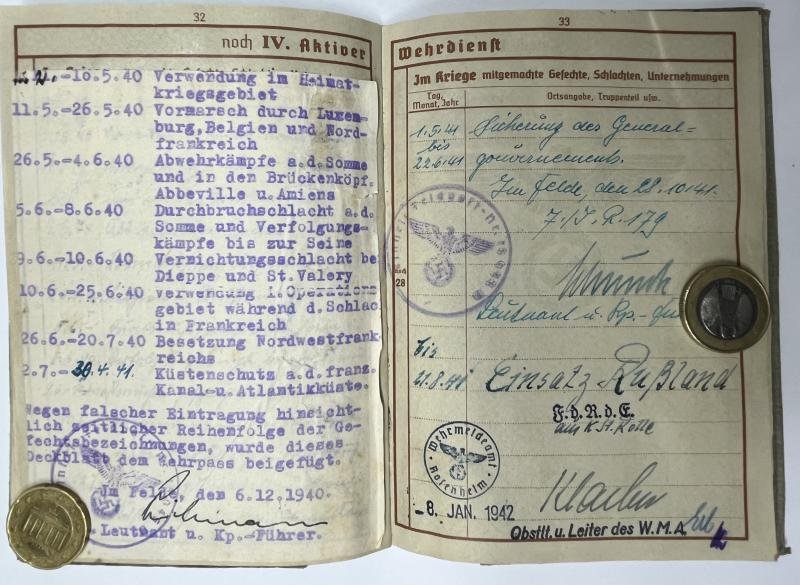 32
noch IV. Aktiver
-10.5.40 Verwendung im Heimat-
kriegsgebiet
11.5.=26.5.40 Vormarsch durch Luxem-
burg,Belgien und Nord-
frankreich
26.5.=4.6.40 Abwehrkämpfe a.d.Somme
und in den Brückenköpf.
Abbeville u.Amiens
5.6.-8.6.40 Durchbruchschlacht a.d.
Somme und Verfolgungs-
kämpfe bis zur Seine
9.6.-10.6.40 Vernichtungsschlacht be
Dieppe und St.Valery
10.6.-25.6.40 Verwendung i.Operations
gebiet während d.Schlac
in Frankreich
26.6.-20.7.40 Besetzung Nordwestfrank
reichs
2.7.- 30.4.41. Küstenschutz a.d.franz.
Kanal-u.Atlantikküste.
Wegen falscher Eintragung hinsicht-
lich zeitlicher Reihenfolge der Ge-
fechtsbezeichnungen, wurde dieses
Deckblatt dem Wehrpass beigefügt.
Im Felde, den 6.12.1940.
Leutnant u. Kp.-Führer.
33
Wehrdienst
Im Kriege mitgemachte Gefechte, Schlachten, Unternehmungen
Tag, Monat, Jahr
Ortsangabe, Truppenteil usw.
1.5.41 Sicherung des General-
bis
22.6.41 gouvernements.
Im Felde, den 28.10.41.
7./J.R.179
28
Leutnant u. Kp.-
bis
21.8.41 Einsatz-Rußland
F.d.R.d.E.
Wehrmeldeamt
Rosenheim
-8. JAN. 1942
Obstlt. u. Leiter des W.M.A.